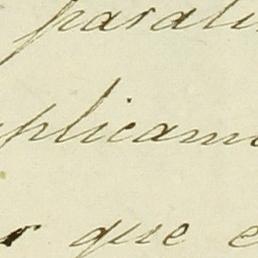 parali
plicam
que e